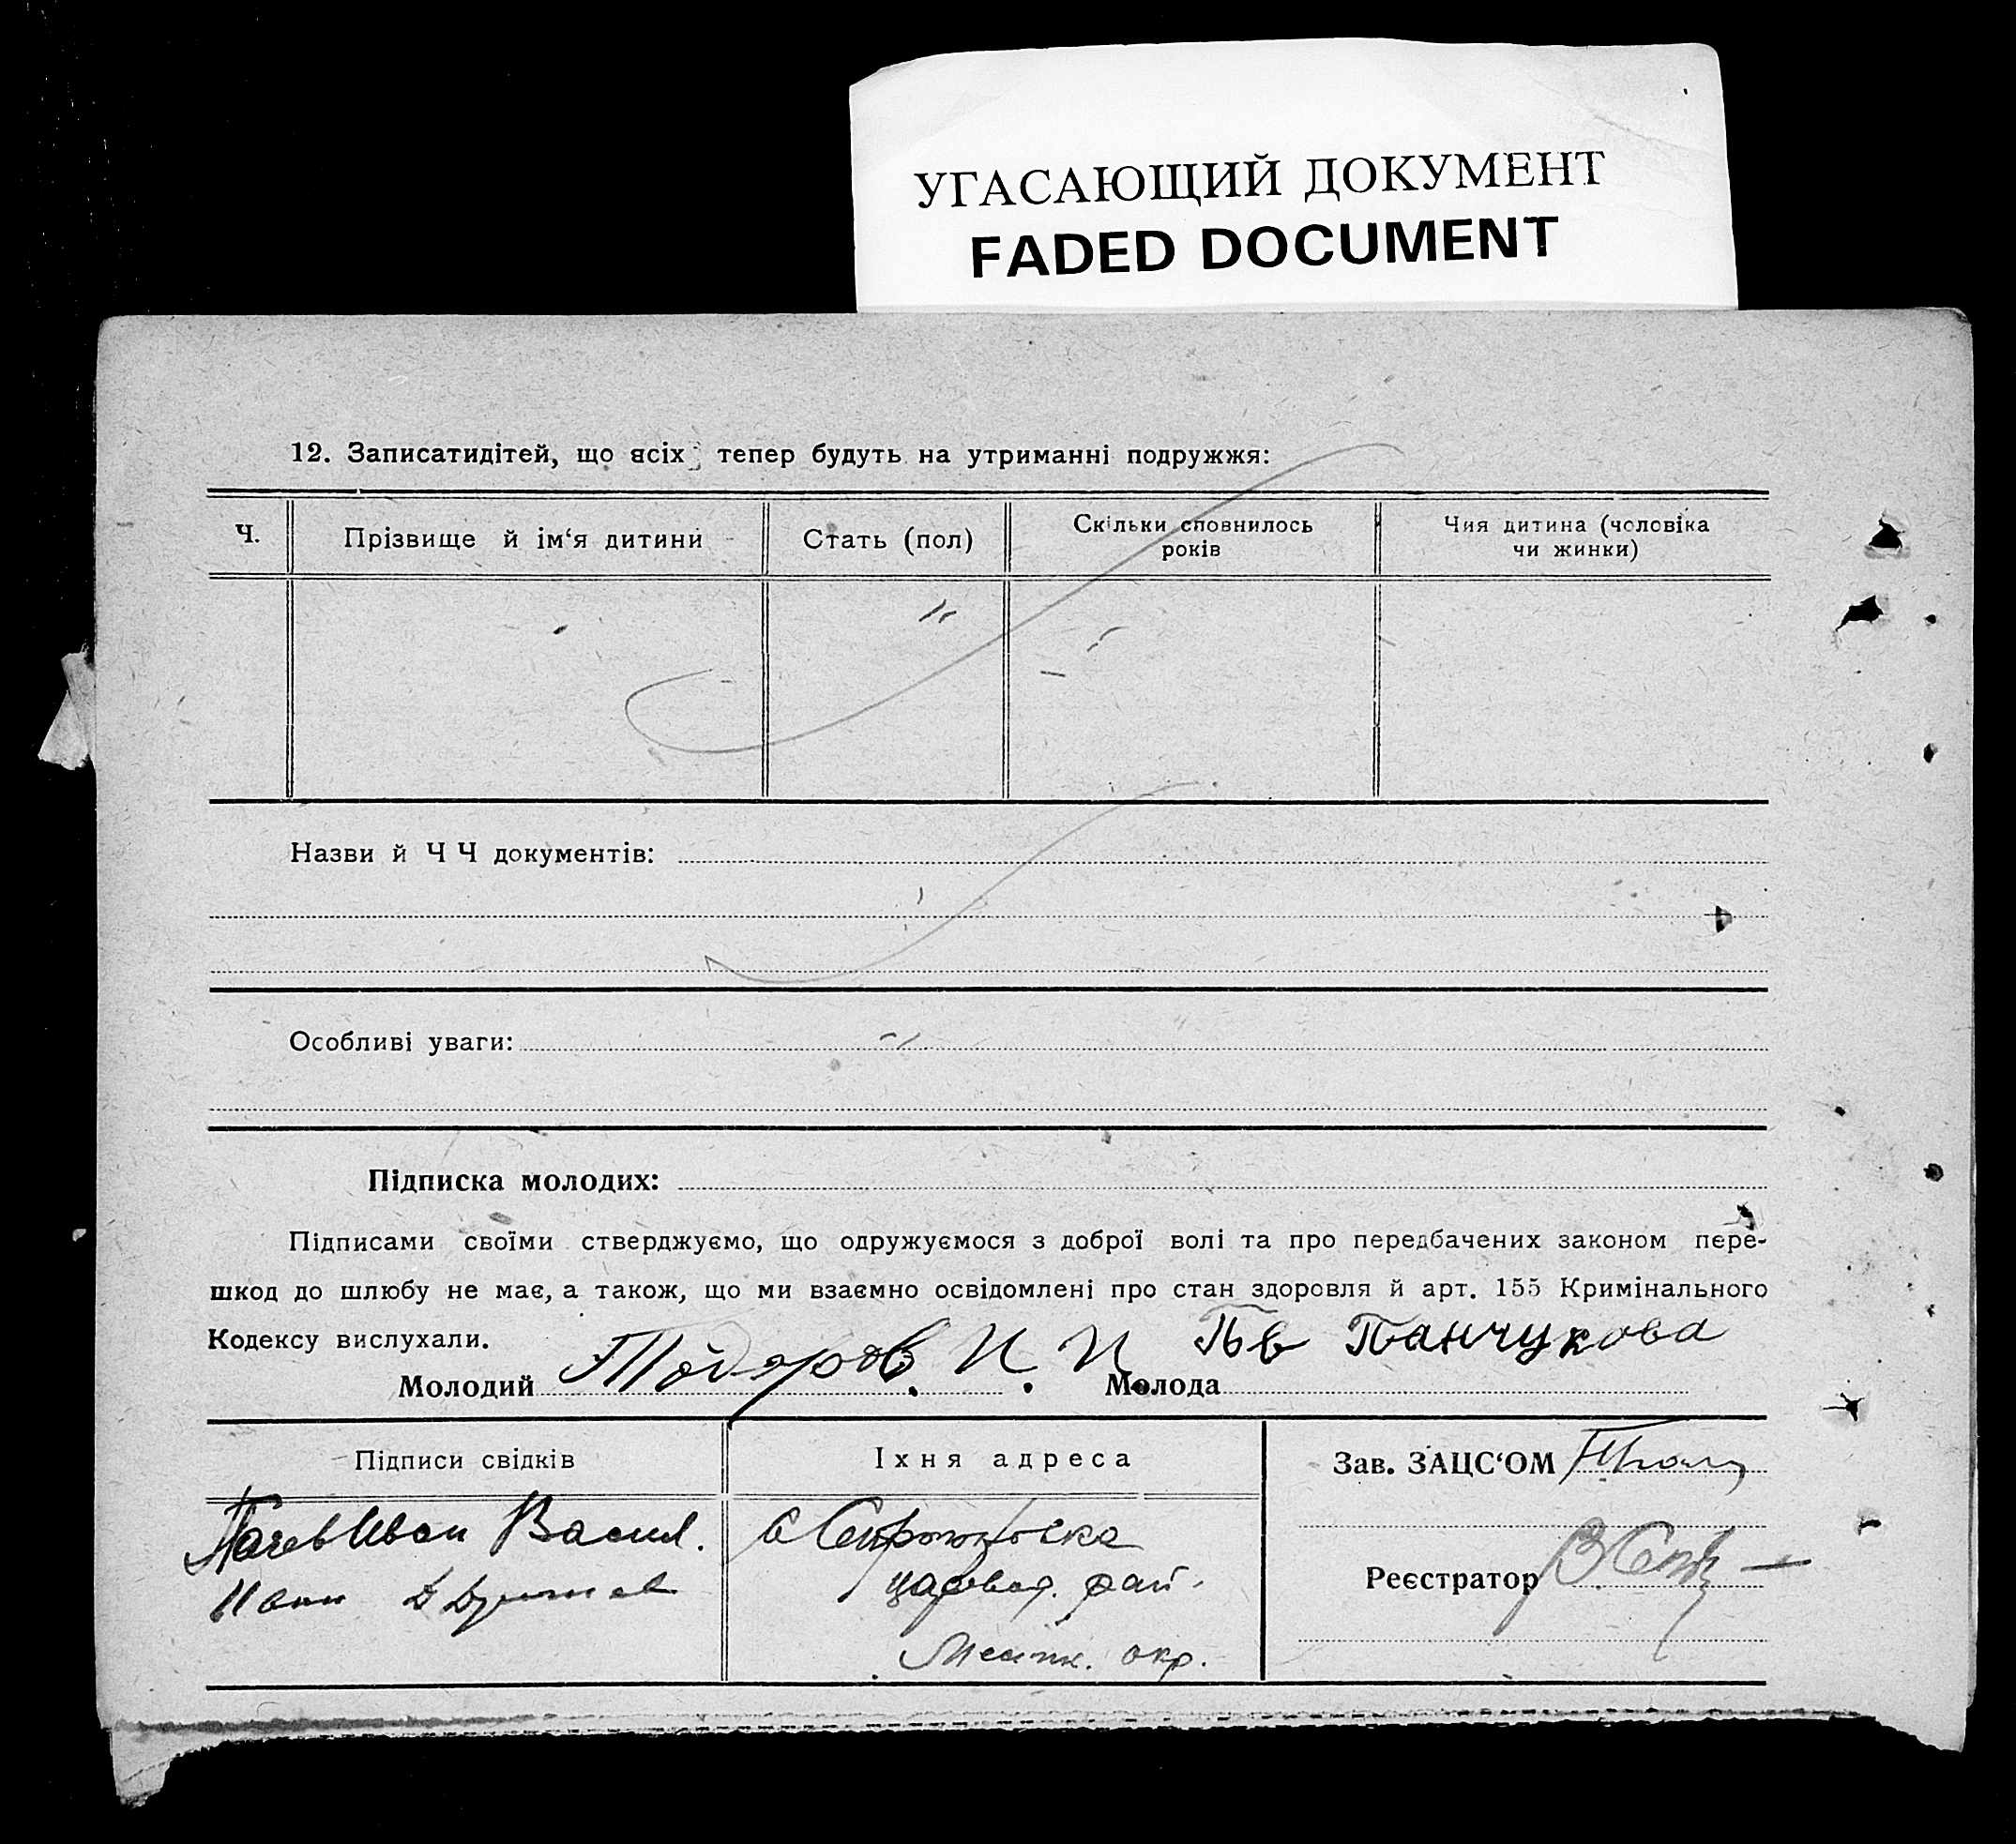 УГАСАЮЩИЙ ДОКУМЕНТ
FADED DOCUMENT
12. Записатидітей, що всіх тепер будуть на утриманні подружжя:
Ч.
Прізвище й ім‘я дитини
Стать (пол)
Скільки сповнилось
років
Чия дитина (чоловіка
чи жинки)
Назви й Ч Ч документів:
Особливі уваги:
Підписка молодих:
Підписами своїми стверджуємо, що одружуємося з доброї волі та про передбачених законом пере-
шкод до шлюбу не має, а також, що ми взаємно освідомлені про стан здоровля й арт. 155 Кримінального
Кодексу вислухали.
Молодий Тодоров. И. И.
Молода Панчукова
Підписи свідків
Іхня адреса
Зав. ЗАЦС‘ОМ
Иван Васил.
Иван
с
рай.
окр.
Реєстратор